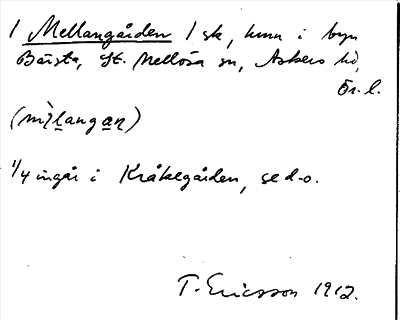 / Mellangården / sk, hmn i byn
Bärsta, St. Mellösa sn, Askers hd,
Ör. l.
(mèlangan)
1/4 ingår i Kråkegården, se d-o.
T. Ericsson 1912.